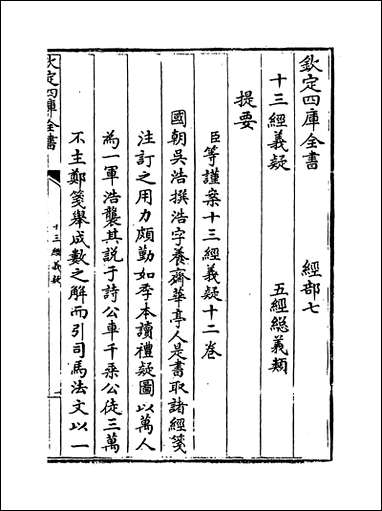 欽定四庫全書　　　　經部七
十三經義疑　　　　　五經總義類
提要
臣等謹案十三經義疑十二卷
國朝吳浩撰浩字養齋華亭人是書取諸經箋
注訂之用力頗勤如季本讀禮疑圖以萬人
為一軍浩襲其說于詩公車千乘公徒三萬
不主鄭箋舉成數之解而引司馬法文以一
欽定四庫全書
十三經義疑